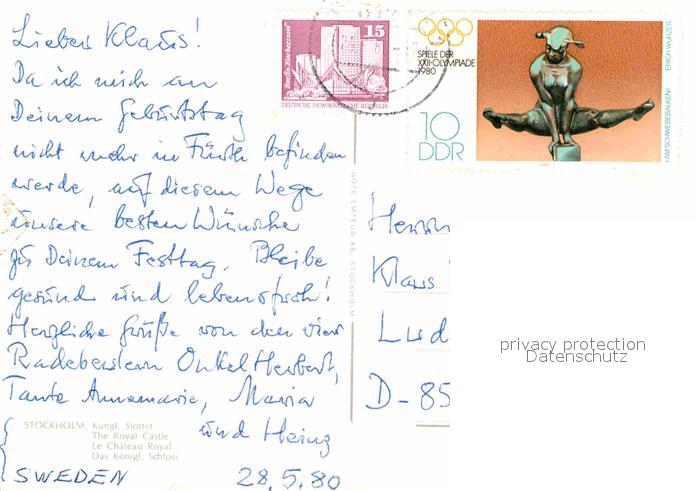 Lieber Klaus!
Da ich mich an
Deinem Geburtstag
nicht mehr in Fürth befinden
werde, auf diesem Wege
unsere besten Wünsche
zu Deinem Festtag. Bleibe
gesund und lebensfroh!
Herzliche Grüße von den vier
Radebeulern Onkel Herbert,
Tante Annemarie, Maria
und Heinz
STOCKHOLM, Kungl. Slottet
The Royal Castle
Le Château Royal
Das Königl. Schloss
SWEDEN 28.5.80
GÖTE EMTEUS AB, STOCKHOLM
15
DEUTSCHE DEMOKRATISCHE REPUBLIK
SPIELE DER
XXII·OLYMPIADE
1980
10
DDR
ERICH WURZER
»AM SCHWEBEBALKEN«
1980
Herrn
Klaus
Lud
D-85
privacy protection
Datenschutz